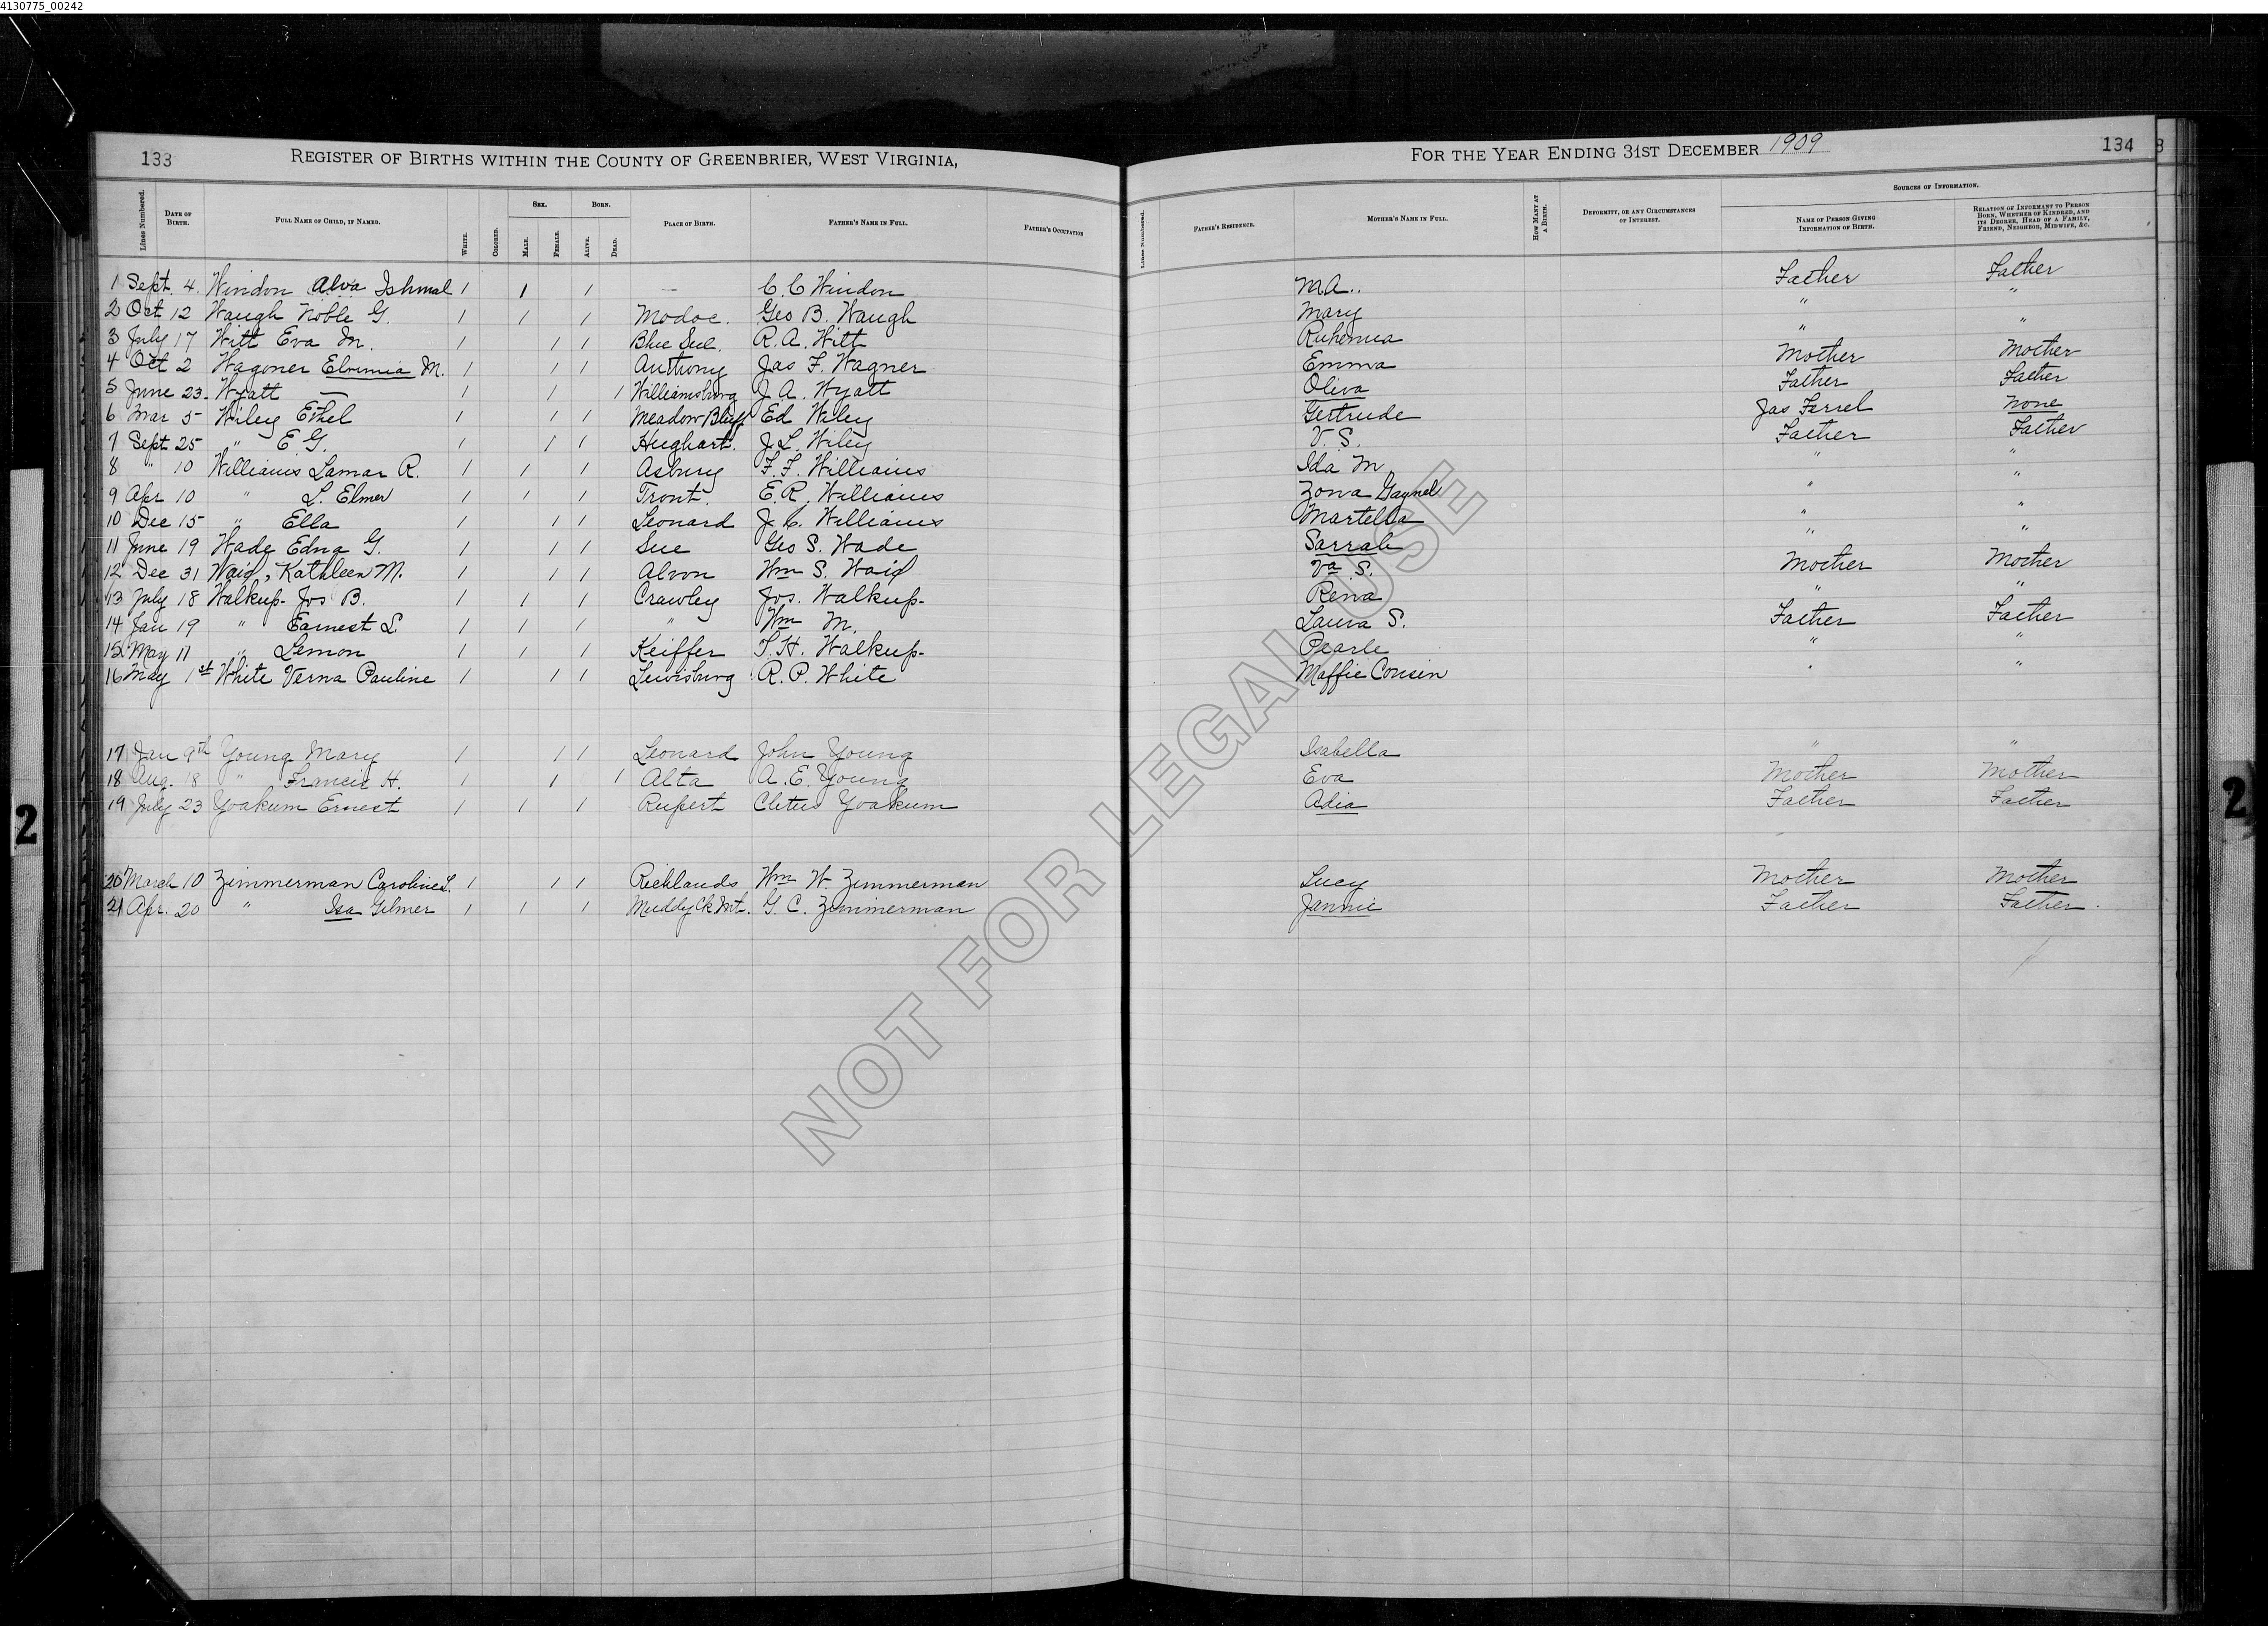 4130775_00242
133 REGISTER OF BIRTHS WITHIN THE COUNTY OF GREENBRIER, WEST VIRGINIA, FOR THE YEAR ENDING 31ST DECEMBER 1909 134
Lines Numbered. DATE OF BIRTH. FULL NAME OF CHILD, IF NAMED. WHITE. COLORED. SEX. MALE. FEMALE. BORN. ALIVE. DEAD. PLACE OF BIRTH. FATHER'S NAME IN FULL. FATHER'S OCCUPATION Lines Numbered. FATHER'S RESIDENCE. MOTHER'S NAME IN FULL. HOW MANY AT A BIRTH. DEFORMITY, OR ANY CIRCUMSTANCES OF INTEREST. SOURCES OF INFORMATION. NAME OF PERSON GIVING INFORMATION OF BIRTH. RELATION OF INFORMANT TO PERSON BORN, WHETHER OF KINDRED, AND ITS DEGREE, HEAD OF A FAMILY, FRIEND, NEIGHBOR, MIDWIFE, &C.
1 Sept. 4. Windon Alva Ishmal 1 1 1 — C. C Windon M.A.. Father Father
2 Oct 12 Waugh Noble G. 1 1 1 Modoc. Geo B. Waugh Mary " "
3 July 17 Witt Eva M. 1 1 1 Blue Sul. R. A. Witt Ruhema " "
4 Oct 2 Wagoner M. 1 1 1 Anthony Jas F. Wagner Emma Mother Mother
5 June 23. Wyatt — 1 1 1 Williamsburg J. A. Wyatt Oliva Father Father
6 Mar 5 Wiley Ethel 1 1 1 Meadow Bluff Ed Wiley Gertrude Jas Ferrel none
7 Sept 25 " E. G. 1 1 1 Hughart. J. L. Wiley V. S. Father Father
8 " 10 Williams Lamar R. 1 1 1 Asbury F. F. Williams Ida M " "
9 Apr 10 " L. Elmer 1 1 1 Trout. E. R. Williams Zona Gaynel " "
10 Dec 15 " Ella 1 1 1 Leonard J. C. Williams Martella " "
11 June 19 Wade Edna G. 1 1 1 Sue Geo S. Wade Sarrah " "
12 Dec 31 Waid, Kathleen M. 1 1 1 Alvon Wm S. Waid Va. S. Mother Mother
13 July 18 Walkup- Jos B. 1 1 1 Crawley Jos. Walkup- Rena " "
14 Jan 19 " Earnest L. 1 1 1 " Wm M. Laura S. Father Father
15 May 11 " Lemon 1 1 1 Keiffer T. H. Walkup- Pearle " "
16 May 1st White Verna Pauline 1 1 1 Lewisburg R. P. White Maffie Cousin " "
17 Jan 9th Young Mary 1 1 1 Leonard John Young Isabella " "
18 Aug. 18 " Francis H. 1 1 1 Alta A. E. Young Eva Mother Mother
19 July 23 Yoakum Ernest 1 1 1 Rupert Cletus Yoakum Adia Father Father
20 March 10 Zimmerman Caroline L. 1 1 1 Richlands Wm W. Zimmerman Lucy Mother Mother
21 Apr. 20 " Isa Gilmer 1 1 1 Muddy Ck Mt. G. C. Zimmerman Jannie Father Father.
NOT FOR LEGAL USE
2 2